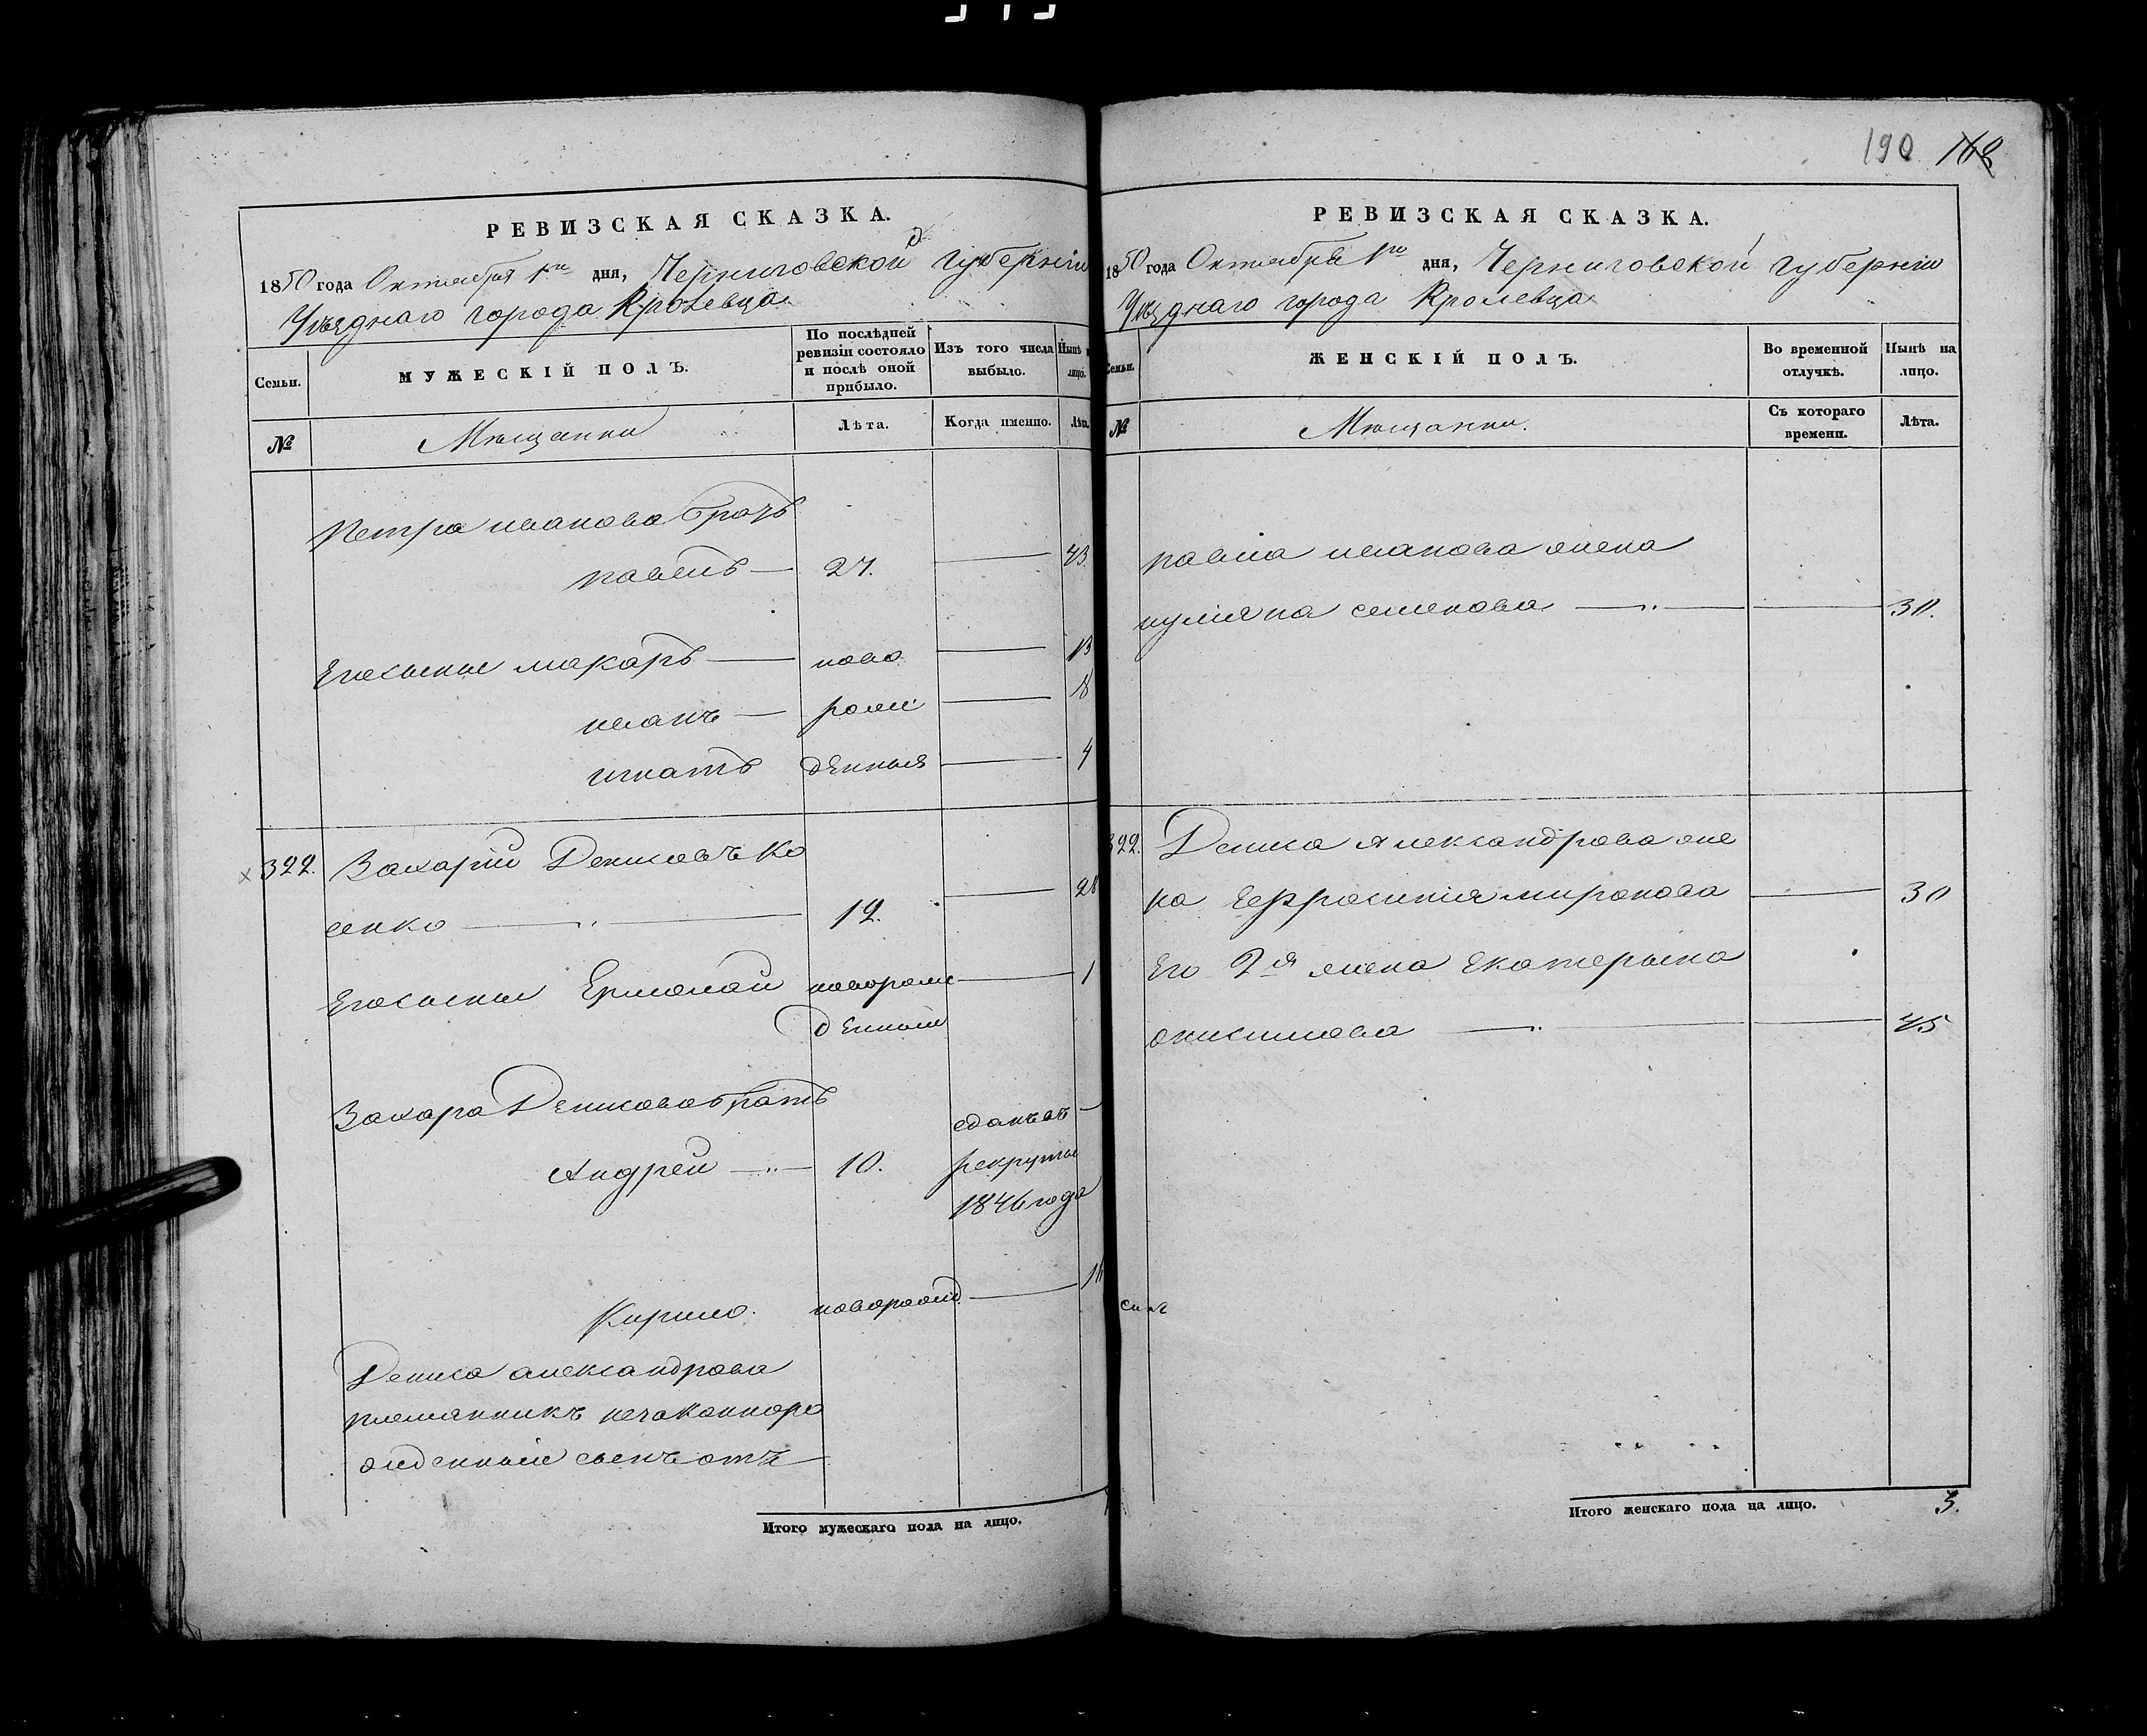 190 168
РЕВИЗСКАЯ СКАЗКА.
1850 года Октября 1го дня, Черниговской Губерніи
Уѣзднаго города Кролевца.
Семьи.
МУЖЕСКІЙ ПОЛЪ.
По послѣдней ревизіи состояло и послѣ оной прибыло.
Изъ того числа выбыло.
Нынѣ на лицо.
№
Мѣщанки
Лѣта.
Когда именно.
Лѣта.
Петра иванова братъ
павелъ — 27. — 43.
Егосыны макаръ — ново — 13
иванъ — рож — 8
игнатъ денныя — 4
322. Захарій Денисовъ Ко
сенко — 12. — 28
Егосыны Ермолай новорож — 1
денный
Захара Денисова братъ
Андрей — 10. сданъ въ —
рекруты
1846 года
Кирило. новорожд. — 16
Дениса александрова
племянникъ незаконноро
жденный сынъ отъ
Итого мужескаго пола на лицо.
РЕВИЗСКАЯ СКАЗКА.
1850 года Октября 1го дня, Черниговской Губерніи
Уѣзднаго города Кролевца
Семьи.
ЖЕНСКІЙ ПОЛЪ.
Во временной отлучкѣ.
Нынѣ на лицо.
№
Мѣщанки.
Съ котораго времени.
Лѣта.
павла иванова жена
семенова — — 30.
322. Дениса Александрова же
на Ефросинія миронова — 30
Его 2я жена Екатерына
онисимова — — 45
Итого женскаго пола на лицо. 3.